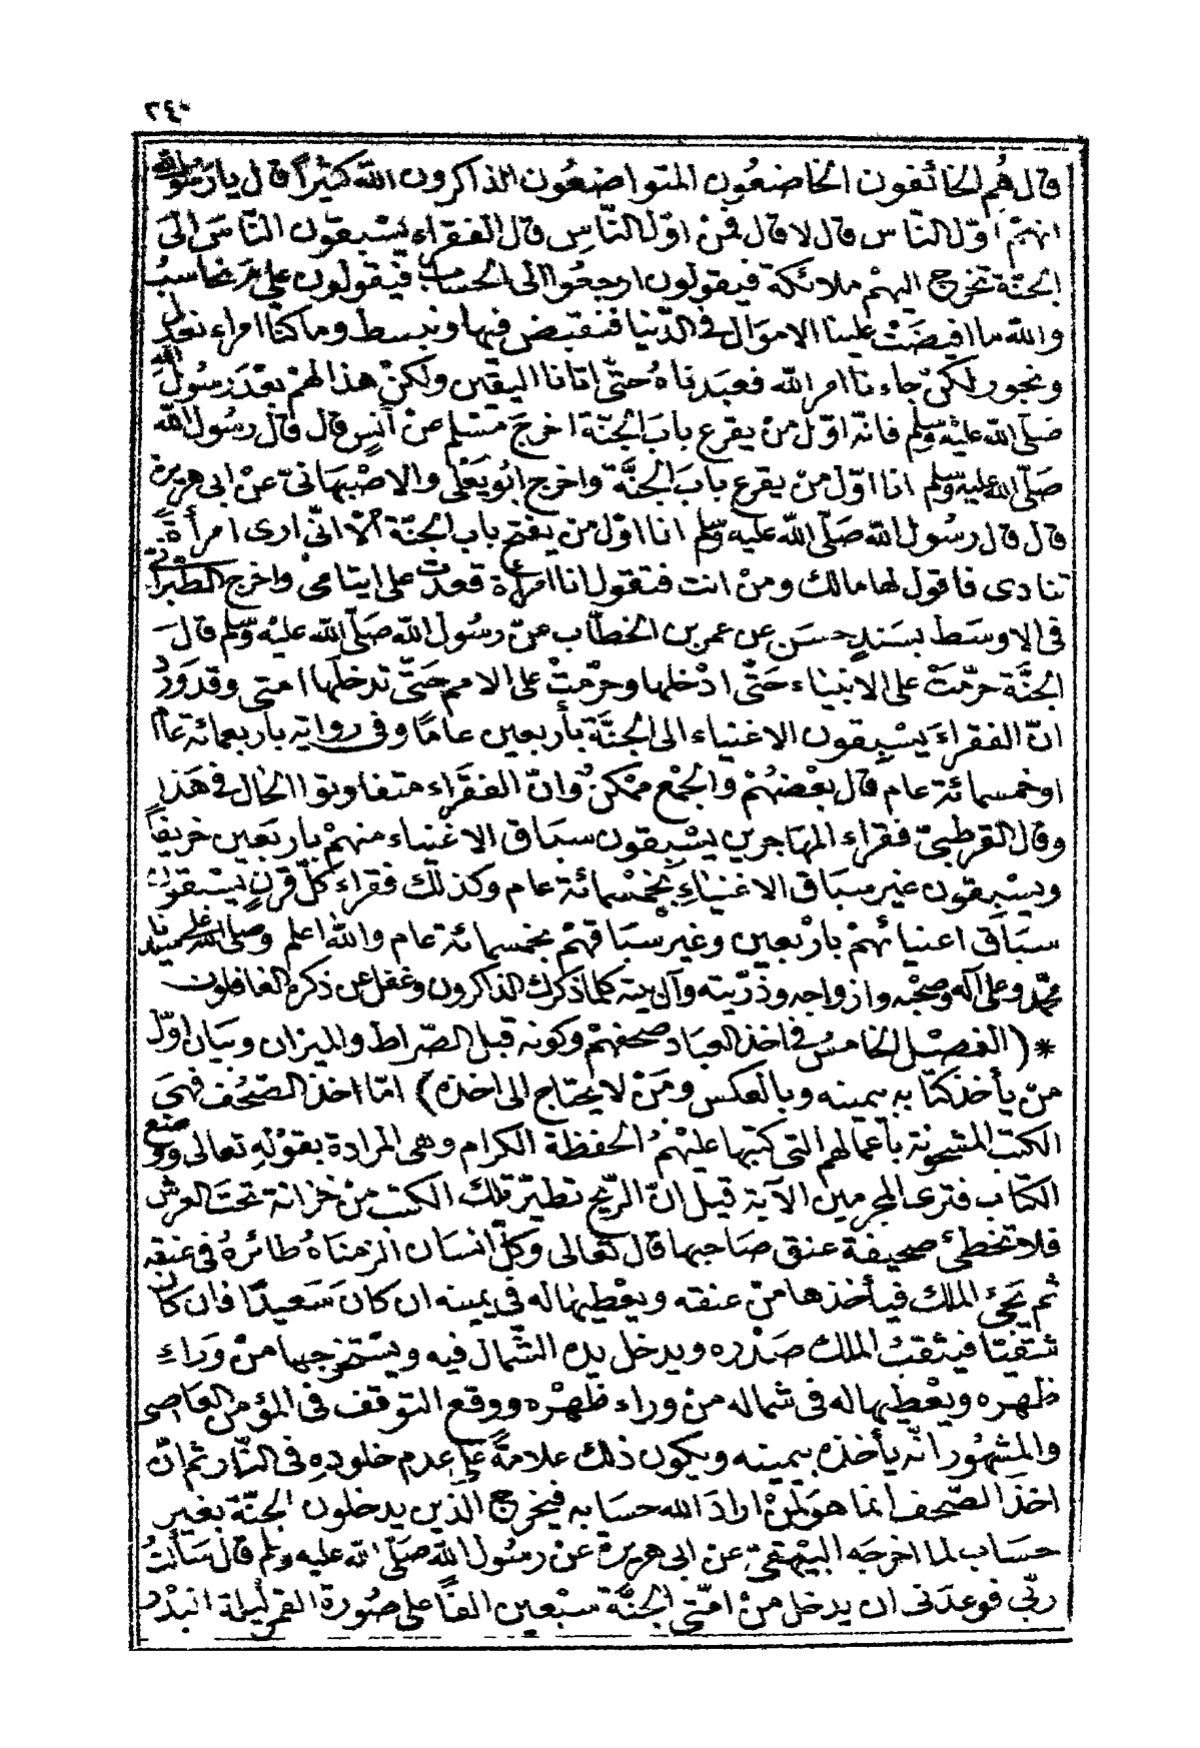 ٢٤٠
قال هُم الخائفون الخاضعُون المتواضعُون الذاكرون الله كثيرًا قال يا رسُول الله
انهمْ اوّل النّاس قال لا قال فمنْ اوّل النّاسِ قال الفقراء يسْبقون النّاسَ الىَ
الجنّة تخرج اليهمْ ملائكة فيقولون ارجعُوا الى الحساب فيقولون علىَ مَ نحاسبُ
والله ما افيضَتْ علينا الاموَال في الدّنيا فنقبض فيها ونبسط وما كنّا امراء نعدل
ونجور لكنْ جاءنا امر الله فعبَدناهُ حتّى اتانا اليقين ولكنْ هذا لهمْ بعْدَ رسُول الله
صَلّى الله عليْه وسَلم فانّه اوّل منْ يقرع بابَ الجنّة اخرجَ مسْلم عنْ أنسٍ قال قال رسُول الله
صَلّى الله عليه وسَلم انا اوّل منْ يقرع بابَ الجنَّة واخرج ابُو يَعْلى والاصْبهانىّ عنْ ابى هريرة
قال قال رسُول الله صَلّى الله عليه وسَلم انا اوّل منْ يفتح باب الجنّة الاّ انّى ارى امرأةً
تنادى فاقول لها مالك ومنْ انت فتقول انا امرأة قعدت على ايتامى واخرج الطّبرانىّ
فى الاوسَط بسَندٍ حسَن عن عمر بن الخطّاب عنْ رسُول الله صَلّى الله عليْه وسَلم قال
الجنَّة حرّمَتْ على الانبياء حَتّى ادْخلها وحرّمتْ على الامم حَتّى تدخلها امتى وقد وَرد
انّ الفقراءَ يسْبِقون الاغنياء الى الجنَّة بأربعين عامًا وفى رواية باربعمائة عام
او خمسمائة عام قال بعْضهُمْ والجمْع ممْكنٌ وانّ الفقَراء متفاوتوا الحال فى هَذا
وقال القرطبىّ فقراء المهَاجرين يسْبِقون سبَاق الاغْنياء منهمْ باربَعين خريفًا
ويسْبِقون غير سبَاق الاغنياءِ بخمْسمائة عام وكذلك فقراء كلّ قرنٍ يسْبقون
سبَاق اغنيائهمْ بارْبعين وغير سبَاقهمْ بخمسمائة عام والله اعلم وصلى الله على سيدنا
محمّد وعلى آله وصحْبه وازواجه وذرّيته وآل بيته كلما ذكرك الذاكرون وغفل عن ذكره الغافلون
* (الفصْل الخامسُ فى اخذ العبَاد صحفهمْ وكونه قبل الصّراط والميزان وبيَان اوّل
منْ يأخذ كتابه بيمينه وبالعكس ومَنْ لا يحتاج الى اخذه) امّا اخذ الصّحُف فهىَ
الكتب المشحونة بأعمالهم التى كتبها عليْهمُ الحفظة الكرام وهى المرادة بقوْلهِ تعالى ووضع
الكتاب فترى المجرمين الآية قيل انّ الرّيح تطيّر تلك الكتب منْ خزانة تحتَ العرش
فلا تخطئ صحيفة عنق صَاحبها قال تعالى وكلّ انسان الزمناهُ طائرهُ فى عنقه
ثم يَجئ الملك فيأخذها منْ عنقه ويعْطيها له فى يمينه ان كانَ سَعيدًا فان كان
شقيّا فيثقبُ الملك صَدْره ويدخل يده الشّمال فيه ويسْتخرجها منْ وَراءِ
ظهره ويعْطيها له فى شماله منْ وراء ظهْره ووقع التوقف فى المؤمن العَاصى
والمشهُور انّه يأخذه بيمينه ويكون ذلك علامةً على عدم خلودِهِ فى النّار ثم انّ
اخذَ الصّحف انما هوَ لمنْ ارادَ الله حسَابه فيخرج الّذين يدخلون الجنّة بغير
حسَاب لما اخرجَه البيْهقىّ عنْ ابى هريرة عنْ رسُول اللهِ صَلّى الله عليه وسلم قال سَألتُ
ربّى فوعدَنى ان يدخل منْ امّتى الجنَّة سبْعين الفًا على صُورة القمر ليلة البدْر